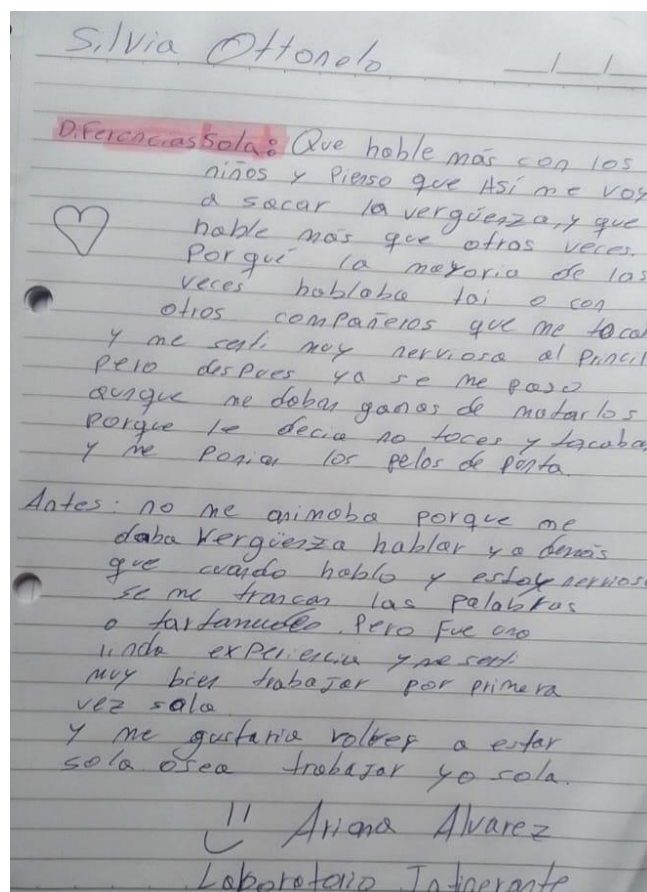 Silvia Ottonelo
__/__/__
Diferencias Sola: Que hable más con los
niños y Pienso que Así me voy
a sacar la vergüenza, y que
hable más que otras veces.
Porqué la mayoria de las
veces hablaba tai o con
otros compañeros que me tocab
y me senti muy nerviosa al Princi
pero despues ya se me paso
aunque me daban ganas de matarlos
porque le decia no toces y tocaba
y me ponian los pelos de ponta.
Antes: no me animaba porque me
daba Vergüenza hablar y a demás
que cuando hablo y estoy nervios
se me trancan las Palabras
o tartamudeo. Pero Fue una
linda experiencia y me senti
muy bien trabajar por primera
vez sola
y me gustaria volver a estar
sola osea trabajar yo sola.
Ariana Alvarez
Laboratorio Itinerante